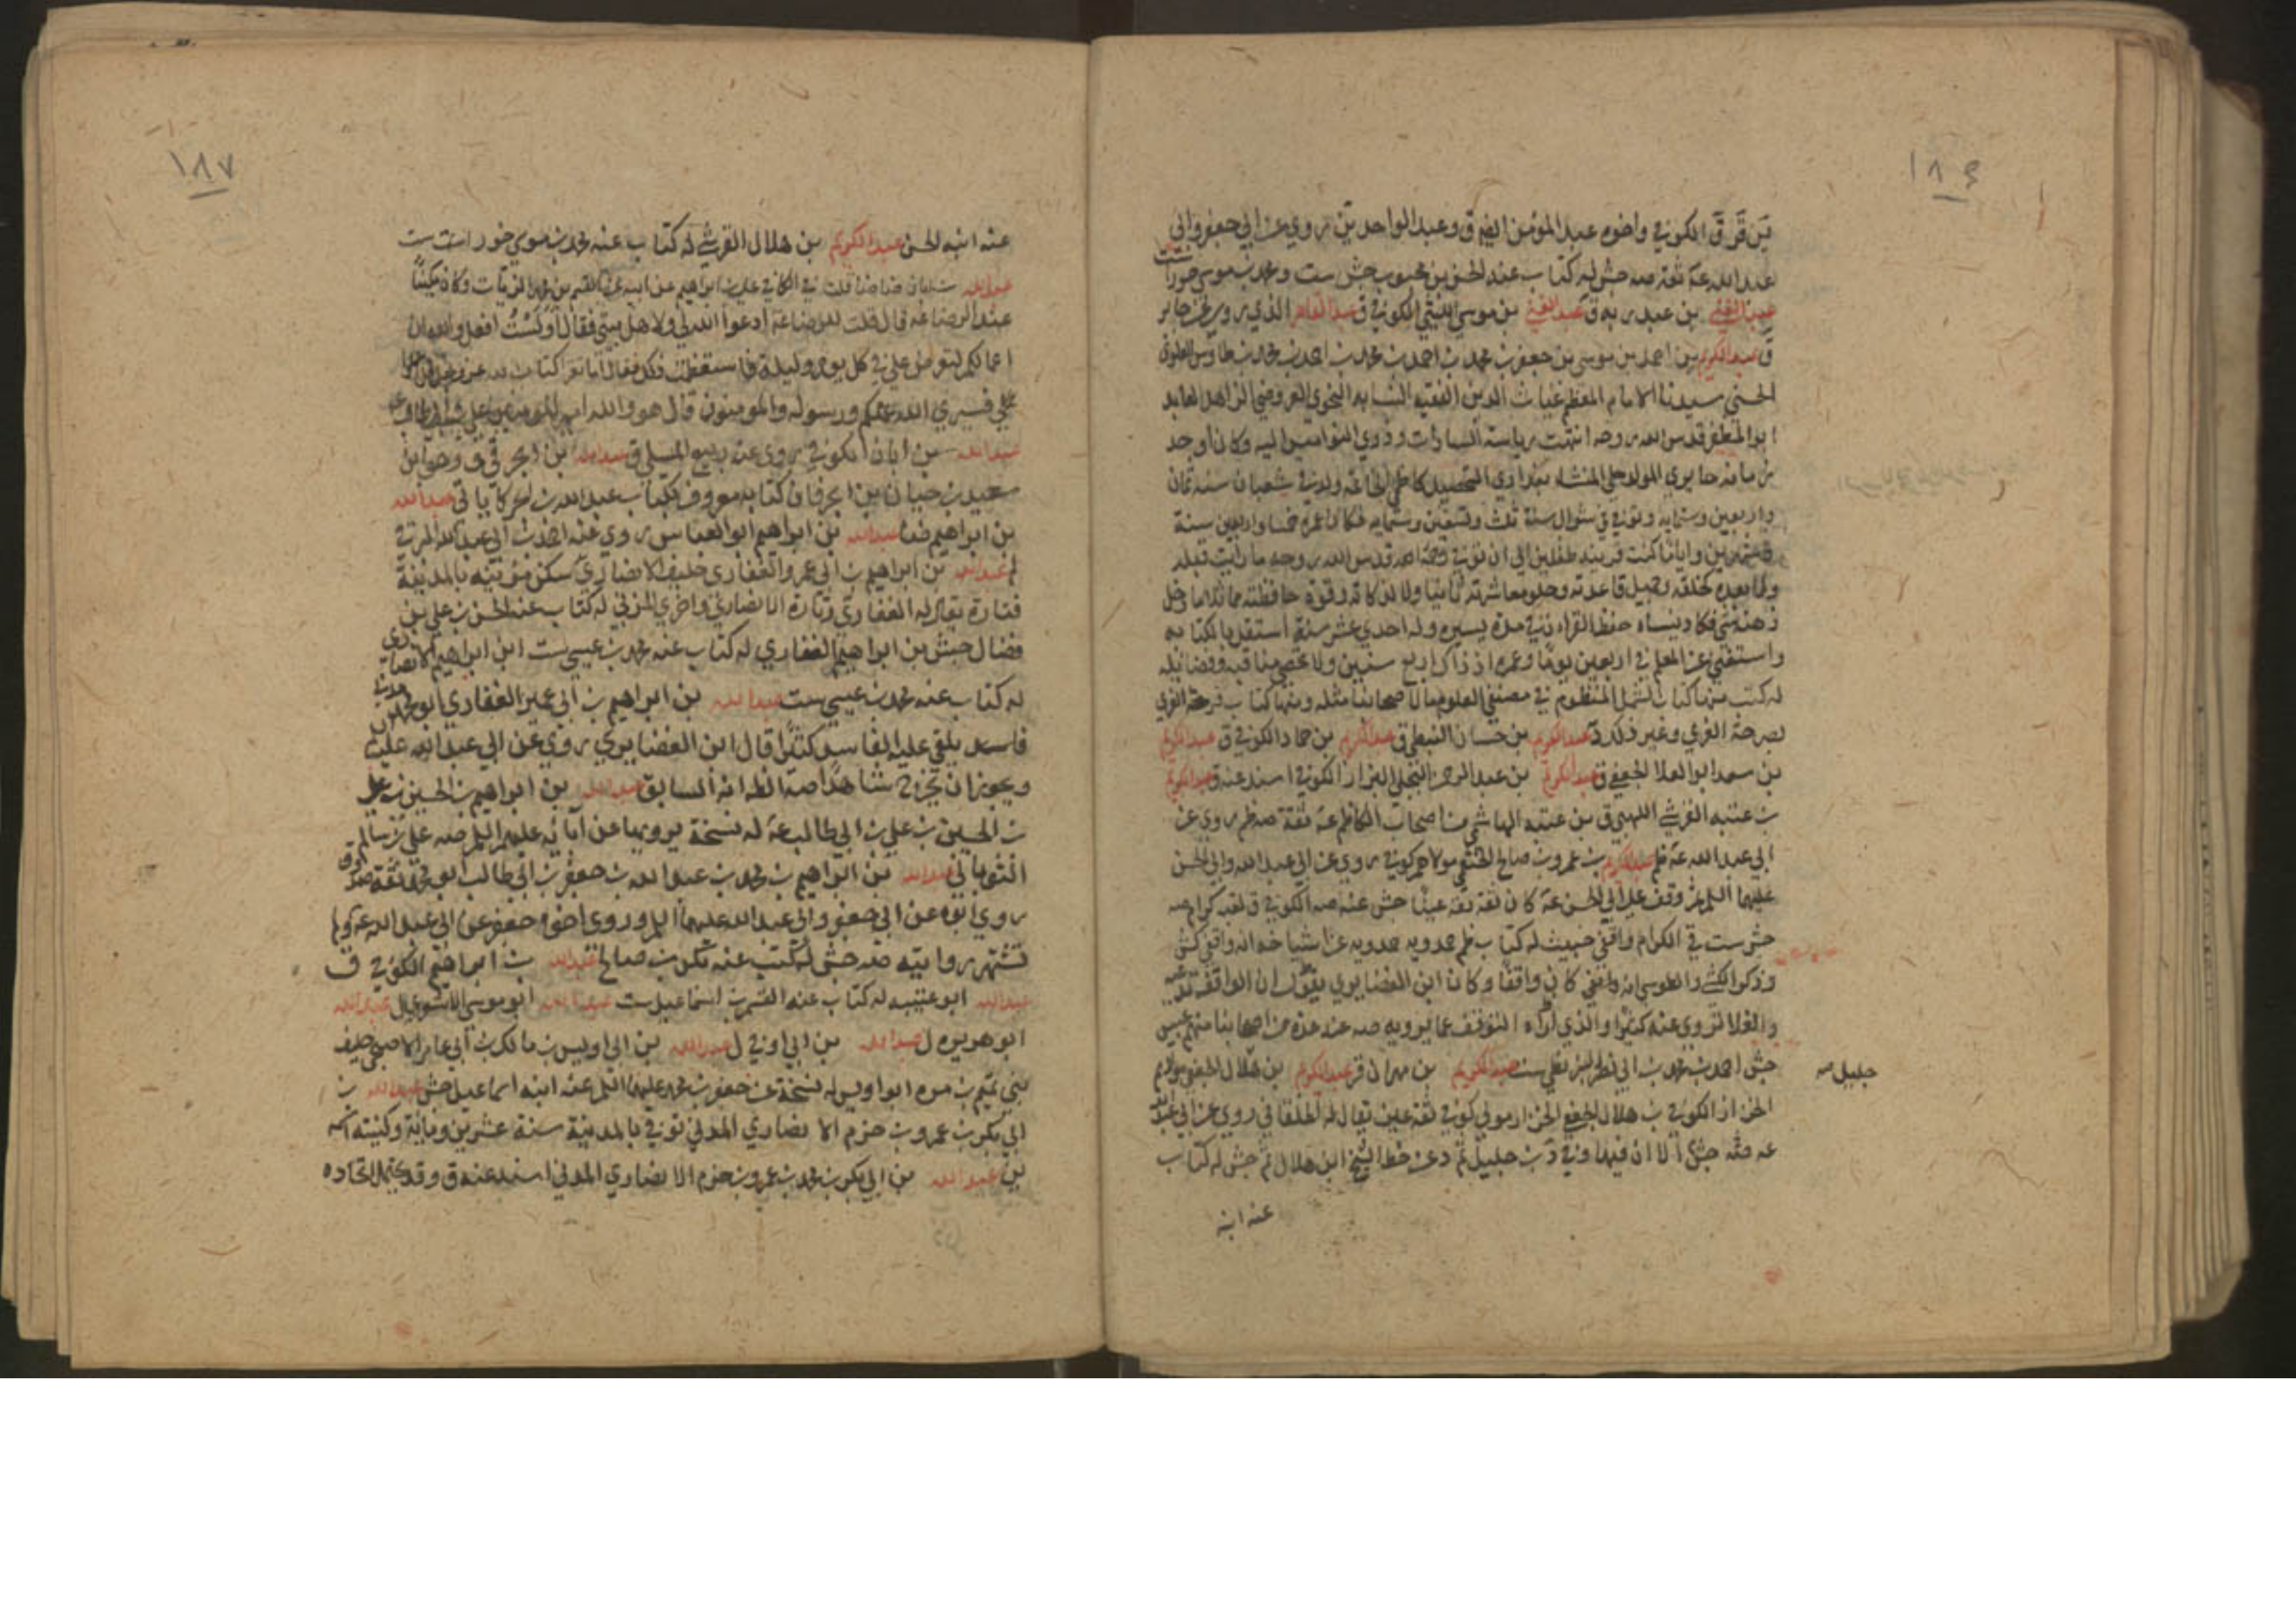 ١٨٦
ق الكوفي واخوه عبد المؤمن ايضا ق وعبد الواحد ين روي عن ابي جعفر وابي
عبد الله عه ثقة صه جش له كتاب عنه الحسن بن محبوب جش ست ومحمد بن موسى خورا ست
بن عبد ربه ق عبد الغني بن موسى الليثي الكوفي ق عبد القاهر الذي روى عن جابر
ق عبد الكريم بن احمد بن موسى بن جعفر بن محمد بن احمد بن محمد بن احمد بن محمد بن طاوس العلوي
الحسني سيدنا الامام المعظم غياث الدين الفقيه النسابه النحوي العروضي الزاهد العابد
ابو المظفر قدس الله روحه انتهت رياسة السادات وذوي النواميس اليه وكان اوحد
زمانه حايري المولد حلي المنشاء بغدادي التحصيل كاظمي الخاتمة ولد في شعبان سنة ثمان
واربعين وستمايه وتوفي في شوال سنة ثلث وتسعين وستمايه فكان عمره خمسا واربعين سنة
وايانا كنت قرينه طفلين الى ان توفي قدس الله روحه ما رايت قبله
ولا بعده كخلقه وجميل قاعدته وحلو معاشرته ثانيا ولا لذكائه وقوة حافظته مماثلا ما دخل
ذهنه شي فكاد ينساه حفظ القرآن في مدة يسيره وله احدي عشر سنة استقل بالكتابه
واستغنى عن المعلم في اربعين يوما وعمره اذ ذاك اربع سنين ولا تحصى مناقبه وفضائله
له كتب منها كتاب الشمل المنظوم في مصنفي العلوم ما لاصحابنا مثله ومنها كتاب فرحة الغري
بصرحة الغري وغير ذلك د عبد الكريم بن حسان النبطي ق عبد الكريم بن حماد الكوفي ق عبد الكريم
بن سعد ابو العلا الجعفي ق عبد الكريم بن عبد الرحمن البجلي البزاز الكوفي اسند عنه ق عبد الكريم
بن عتبه القرشي اللهبي ق بن عتبه الهاشمي من اصحاب الكاظم عه ثقة صه ظم روي عن
ابي عبد الله عه ظم عبد الكريم بن عمرو بن صالح الخثعمي مولاهم كوفي روي عن ابي عبد الله وابي الحسن
عليهما السلم ثم وقف على ابي الحسن عه كان ثقة ثقة عينا جش عنه صه الكوفي ق لقبه كرام صه
جش ست ق الكرام واقفي خبيث له كتاب ظم حمدويه عن اشياخه انه واقفي كش
وذكر الكشي والطوسي انه واقفي كان واقفا وكان ابن الغضايري يقول ان الواقفة تدعيه
والغلاة تروي عنه كثيرا والذي اراه التوقف عما يرويه صه عنه عدة من اصحابنا منهم عبيس
جش احمد بن محمد بن ابي نصر البزنطي ست عبد الكريم بن مهران قر عبد الكريم بن هلال الجعفي مولاهم
جليل صه
الخزاز الكوفي بن هلال الجعفي الخزاز مولى كوفي ثقة عين يقال له الخلقاني روي عن ابي عبد الله
عه صه جش الا ان فيها وفي د بن جليل ثم د عن خط الشيخ ابن هلال ثم جش له كتاب
عنه ابنه
١٨٧
عنه ابنه الحسن عبد الكريم بن هلال القرشي له كتاب عنه محمد بن موسى خورا ست ست
عبد الله بن ابان ضا ضا قلت في الكافي علي بن ابراهيم عن ابيه عن القسم بن محمد الزيات وكان مكينا
عند الرضا عه قال قلت للرضا عه ادعوا الله لي ولاهل بيتي فقال اولست افعل والله ان
اعمالكم لتعرض علي في كل يوم وليلة فاستعظمت ذلك فقال اما تقرا كتاب الله عز وجل
فسيرى الله عملكم ورسوله والمومنون قال هو والله امير المومنين علي بن ابي طالب
عبد الله بن ابان الكوفي روي عنه ربيع المسلي ق عبد الله بن ابجر ق وهو ابن
سعيد بن حيان بن ابجر فان كتابه معروف بكتاب عبد الله بن ابجر كما ياتي عبد الله
بن ابراهيم ضا عبد الله بن ابراهيم ابو العباس روي عنه احمد بن ابي عبد الله البرقي
لم عبد الله بن ابراهيم بن ابي عمرو الغفاري حليف الانصاري سكن مزينه بالمدينة
فتارة يقال له الغفاري وتارة الانصاري واخري المزني له كتاب عنه الحسن بن علي بن
فضال جش بن ابراهيم الغفاري له كتاب عنه محمد بن عيسى ست ابن ابراهيم الانصاري
له كتاب عنه محمد بن عيسى ست عبد الله بن ابراهيم بن ابي عمير الغفاري ابو محمد
فاسد يلقي عليه الفاسد كثيرا قال ابن الغضايري روي عن ابي عبد الله عليه
ويجوز ان يخرج شاهدا صه الظ انه السابق عبد الله بن ابراهيم بن الحسين بن علي
بن الحسين بن علي بن ابي طالب عه له نسخة يرويها عن آبائه عليهم السلم صه علي بن سالم
الثوباني عبد الله بن ابراهيم بن محمد بن عبد الله بن جعفر بن ابي طالب ابو محمد ثقة صدوق
روي ابوه عن ابي جعفر وابي عبد الله عليهما السلم وروي اخوه جعفر عن ابي عبد الله عه ولم
تشتهر روايته صه جش له كتب عنه بكر بن صالح عبد الله بن ابراهيم الكوفي ق
عبد الله ابو عتيبه له كتاب عنه القسم بن اسماعيل ست عبد الله ابو موسى الاشعري ل عبد الله
ابو هريره ل عبد الله بن ابي اوفي ل عبد الله بن ابي اويس بن مالك بن ابي عامر الاصبحي حليف
بني تميم بن مره ابو اويس له نسخة عن جعفر بن محمد عليهما السلم عنه ابنه اسماعيل جش عبد الله بن
ابي بكر بن عمرو بن حزم الانصاري المدني توفي بالمدينة سنة عشرين ومائة وكنيته اسمه
ين عبد الله بن ابي بكر بن محمد بن عمرو بن حزم الانصاري المدني اسند عنه ق وقد يحتمل اتحاده